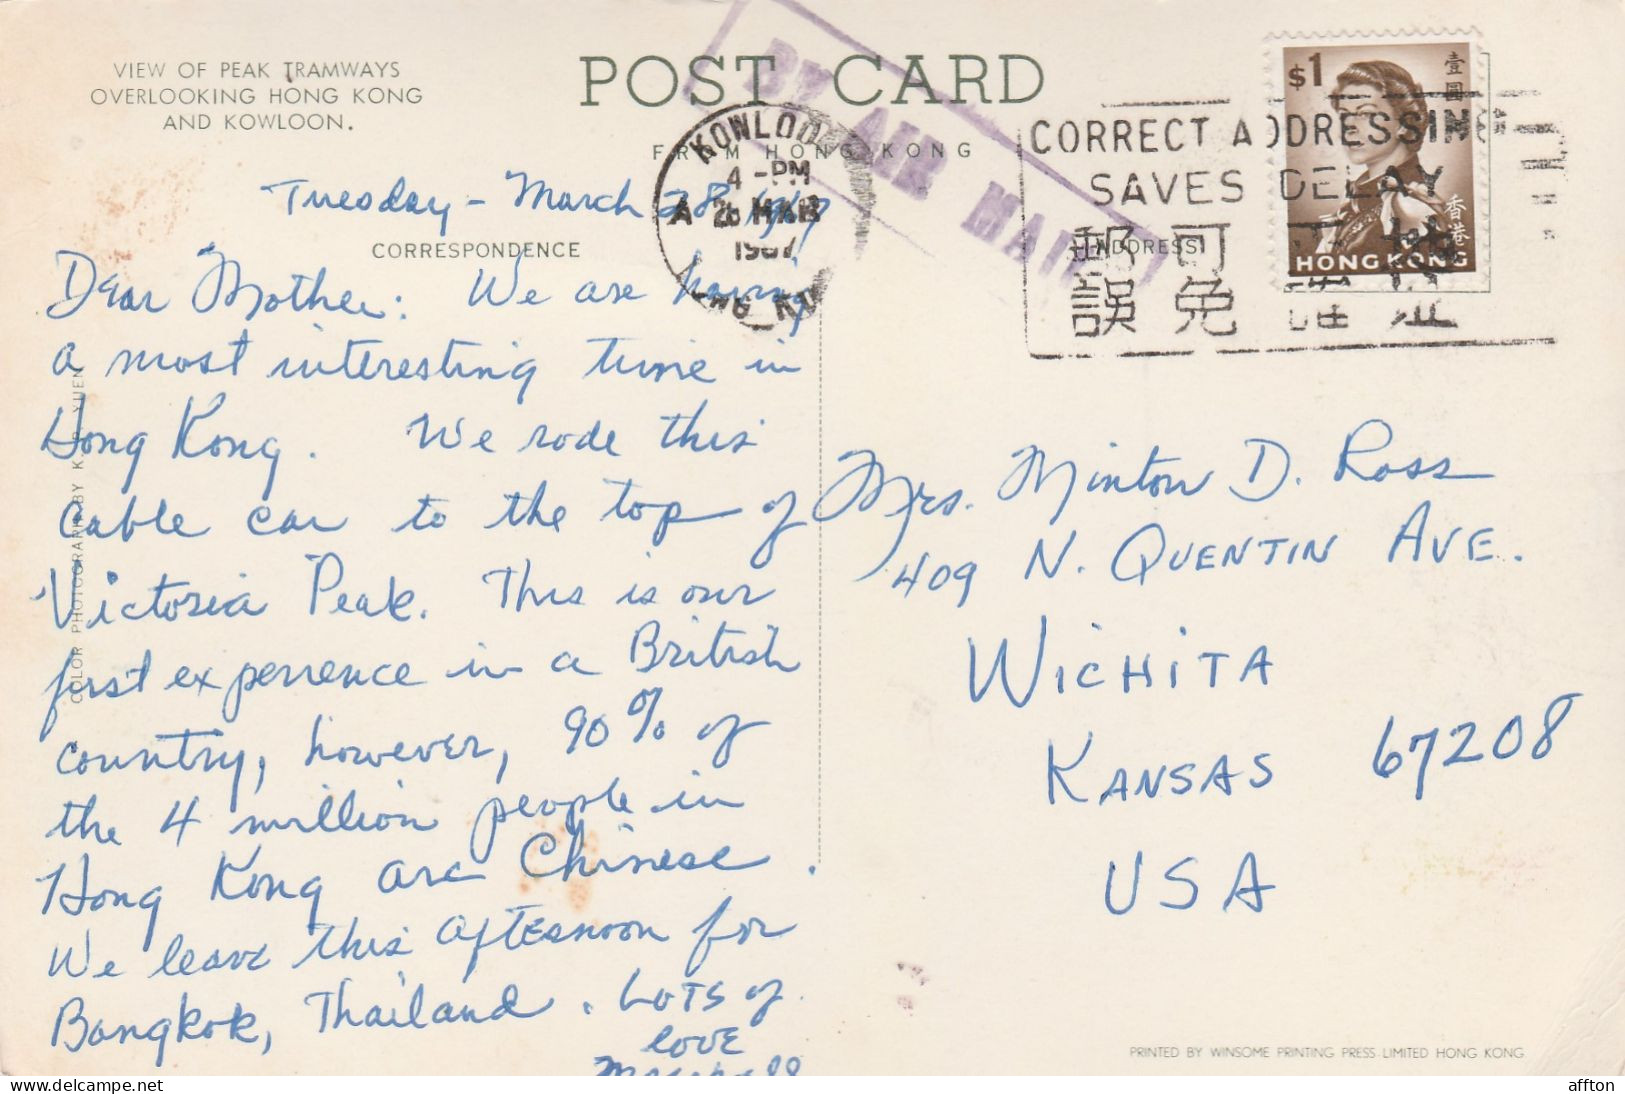 VIEW OF PEAK TRAMWAYS
OVERLOOKING HONG KONG
AND KOWLOON.
POST CARD
FROM HONG KONG
BY AIR MAIL
KOWLOON
4 -PM
A 28 MAR
1967
CORRECT ADDRESSING
SAVES DELAY
郵可
誤免
$1
壹圓
香港
HONG KONG
CORRESPONDENCE
ADDRESS
Tuesday - March 28, 1967
Dear Mother: We are having
a most interesting time in
Hong Kong. We rode this
cable car to the top of
Victoria Peak. This is our
first experience in a British
country, however, 90% of
the 4 million people in
Hong Kong are Chinese.
We leave this afternoon for
Bangkok, Thailand. Lots of
love
Marshall
Mrs. Minton D. Ross
409 N. QUENTIN AVE.
WICHITA
KANSAS 67208
USA
COLOR PHOTOGRAPH BY K. P. YUEN
PRINTED BY WINSOME PRINTING PRESS LIMITED HONG KONG
www.delcampe.net/en_US/collectibles
affton